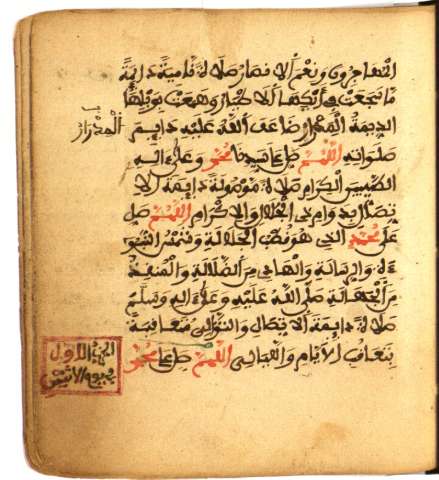 المهاجرون ونعم الانصار صلاة نامية دايمة
ما سجعت في أيكها الاطيار وهمعت بوبلها
الديمة المدرار ضاعف الله عليه دايم
المدرار
صلواته اللهم صل على سيدنا محمد وعلى اله
الطيبين الكرام صلاة موصولة دايمة الا
تصال بدوام ذي الجلال والاكرام اللهم صل
على محمد الذي هو قطب الجلالة وشمس النبو
ءة والرسالة والهادي من الضلالة والمنقذ
من الجهالة صلى الله عليه وعلى اله وسلم
صلاة دايمة الاتصال والتوالي متعاقبة
بتعاقب الايام والليالي اللهم صل على محمد
الحزب الاول
في يوم الاثنين